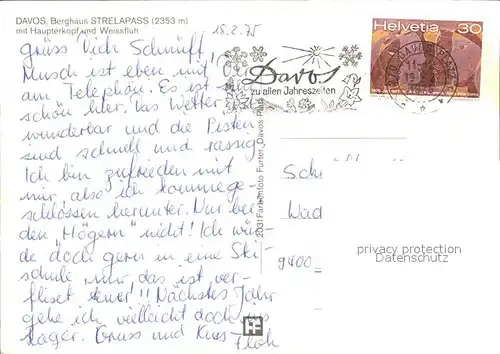 DAVOS, Berghaus STRELAPASS (2353 m)
mit Haupterkopf und Weissfluh
15.2.75
grüss Dich Schnuff!
Musch ist eben mit
am Telephon. Es ist
schön hier. Das Wetter
wunderbar und die Pisten
sind schnell und rassig
Ich bin zufrieden mit
mir, also ich komme ge-
schlossen herunter. Nur bei
den "Högern" nicht! Ich wür-
de doch gern in eine Ski-
schule nur das ist ver-
flixt teuer!! Nächstes Jahr
gehe ich vielleicht doch ins
Lager. Gruss und Kuss
Floh
Davos
zu allen Jahreszeiten
Helvetia 30
2031 Farbenfoto Furter, Davos-Platz
Sch
Wad
9400
privacy protection
Datenschutz